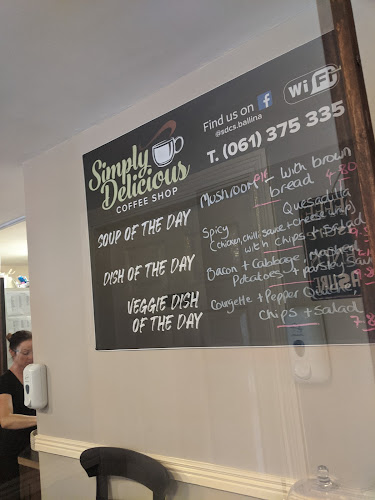 Simply
Delicious
COFFEE SHOP
Find us on f
@sdcs.ballina
WiFi
T. (061) 375 335
SOUP OF THE DAY
Mushroom - with brown
bread 4.80
DISH OF THE DAY
Spicy Quesadilla
(chicken, chilli sauce + cheese wrap)
with chips + salad
Bacon + Cabbage, mashed
Potatoes + parsley
VEGGIE DISH
OF THE DAY
Courgette + Pepper
chips + salad